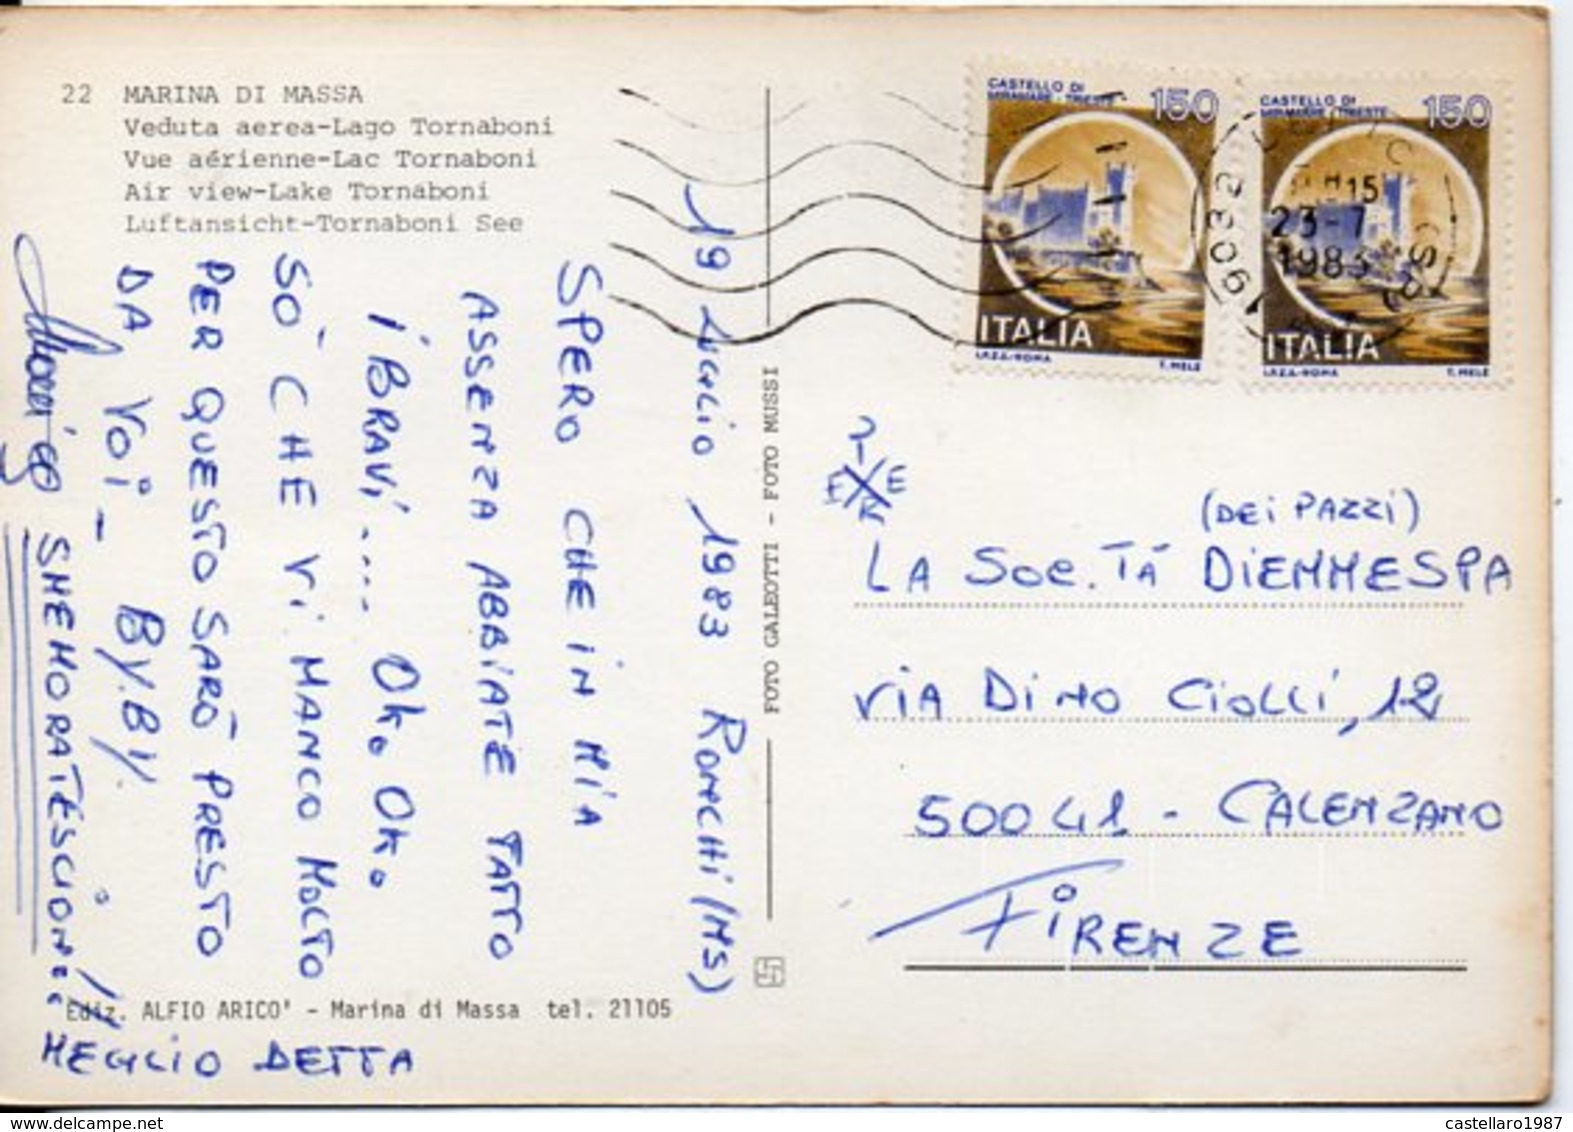 22 MARINA DI MASSA
Veduta aerea-Lago Tornaboni
Vue aérienne-Lac Tornaboni
Air view-Lake Tornaboni
Luftansicht-Tornaboni See
19 LUGLIO 1983 RONCHI (MS)
SPERO CHE IN MIA
ASSENZA ABBIATE FATTO
I BRAVI.... OK. OK.
SO' CHE VI MANCO MOLTO
PER QUESTO SARÒ PRESTO
DA VOI - BY. BY.
MEGLIO DETTA
Ediz. ALFIO ARICO' - Marina di Massa tel. 21105
FOTO GALEOTTI - FOTO MUSSI
CASTELLO DI
MIRAMARE - TRIESTE
150
ITALIA
I.P.Z.S.-ROMA T. MELE
CASTELLO DI
MIRAMARE - TRIESTE
150
ITALIA
I.P.Z.S.-ROMA T. MELE
15
23-7
1983
(DEI PAZZI)
LA SOC.TÀ DIEMMESPA
VIA DINO CIOLLI, 12
50041 - CALENZANO
FIRENZE
castellaro1987